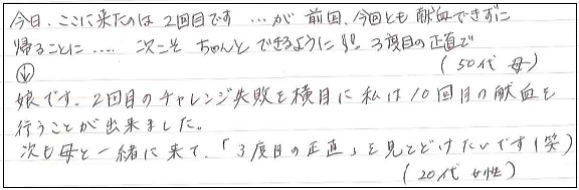 今日、ここに来たのは2回目です …が 前回、今回とも献血できずに
帰ることに…. 次こそ ちゃんとできるように 3度目の正直で
(50代 母)
↓
娘です。2回目のチャレンジ失敗を横目に私は10回目の献血を
行うことが出来ました。
次も母と一緒に来て、「3度目の正直」を見とどけたいです(笑)
(20代 女性)